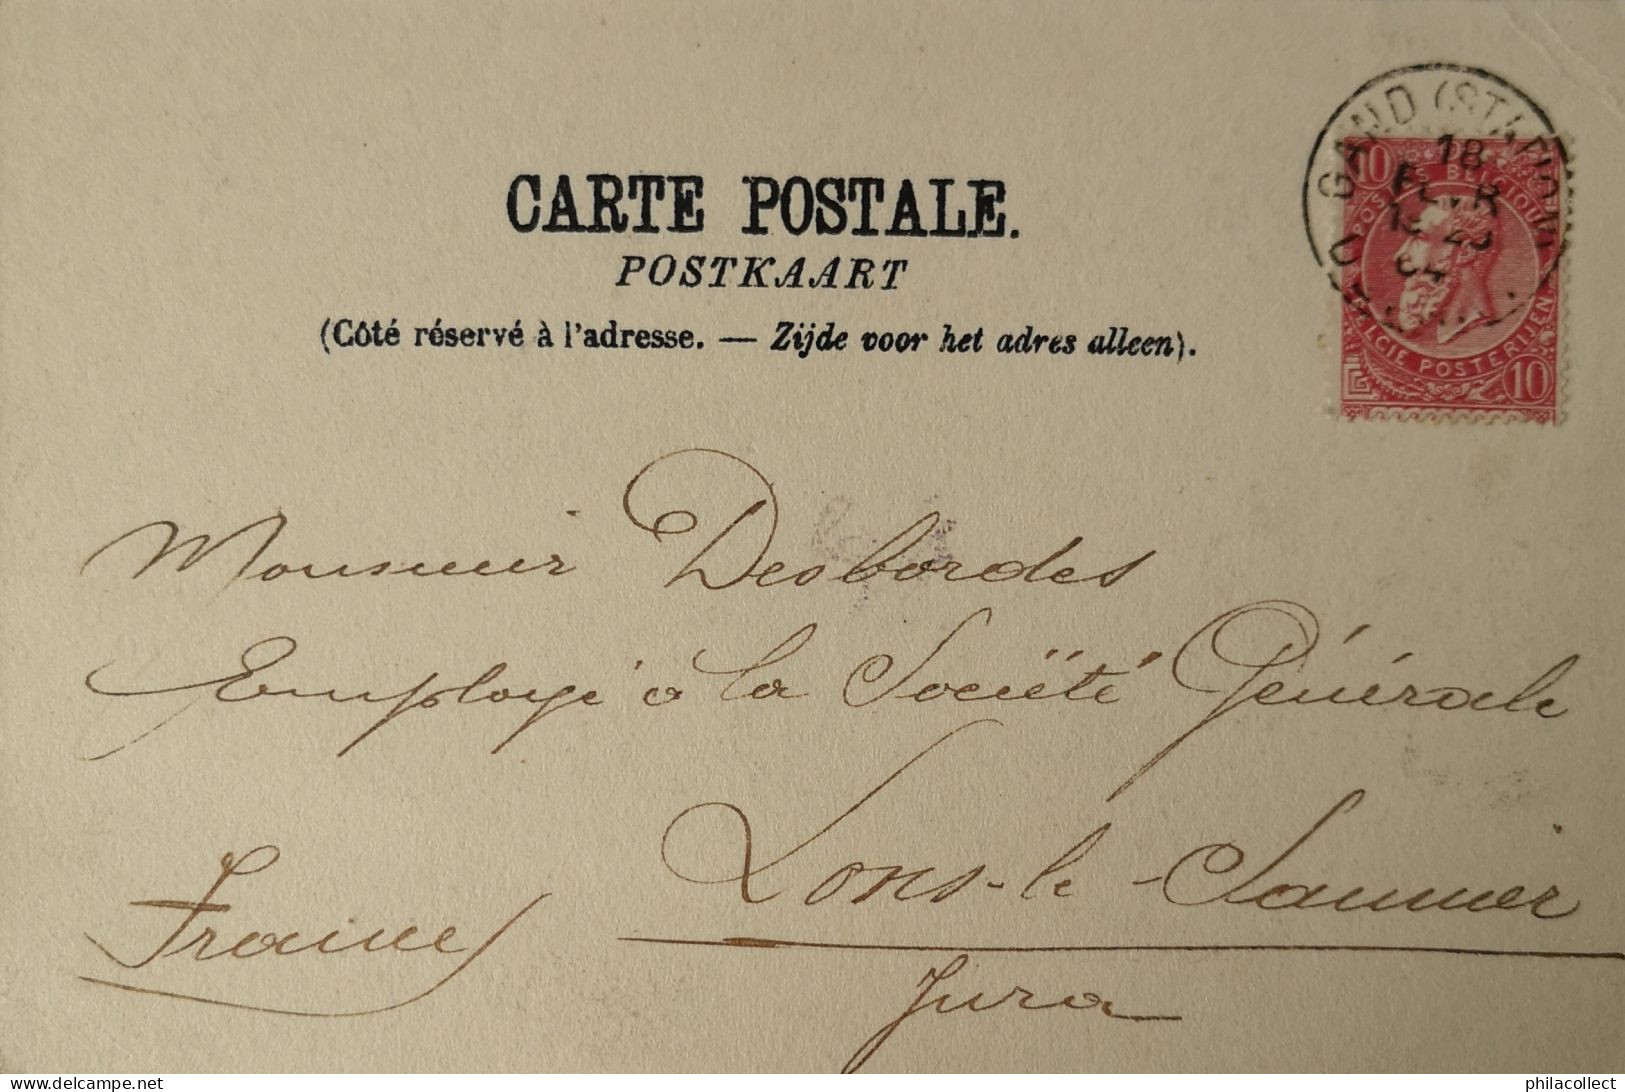 CARTE POSTALE.
POSTKAART
(Côté réservé à l'adresse. — Zijde voor het adres alleen).
GAND (STATION)
18
FEVR
04
10 POSTES BELGIQUE
BELGIE POSTERIJEN 10
Monsieur Desbordes
Employé à la Société Générale
Lons-le-Saunier
France
Jura
delcampe.net
philacollect